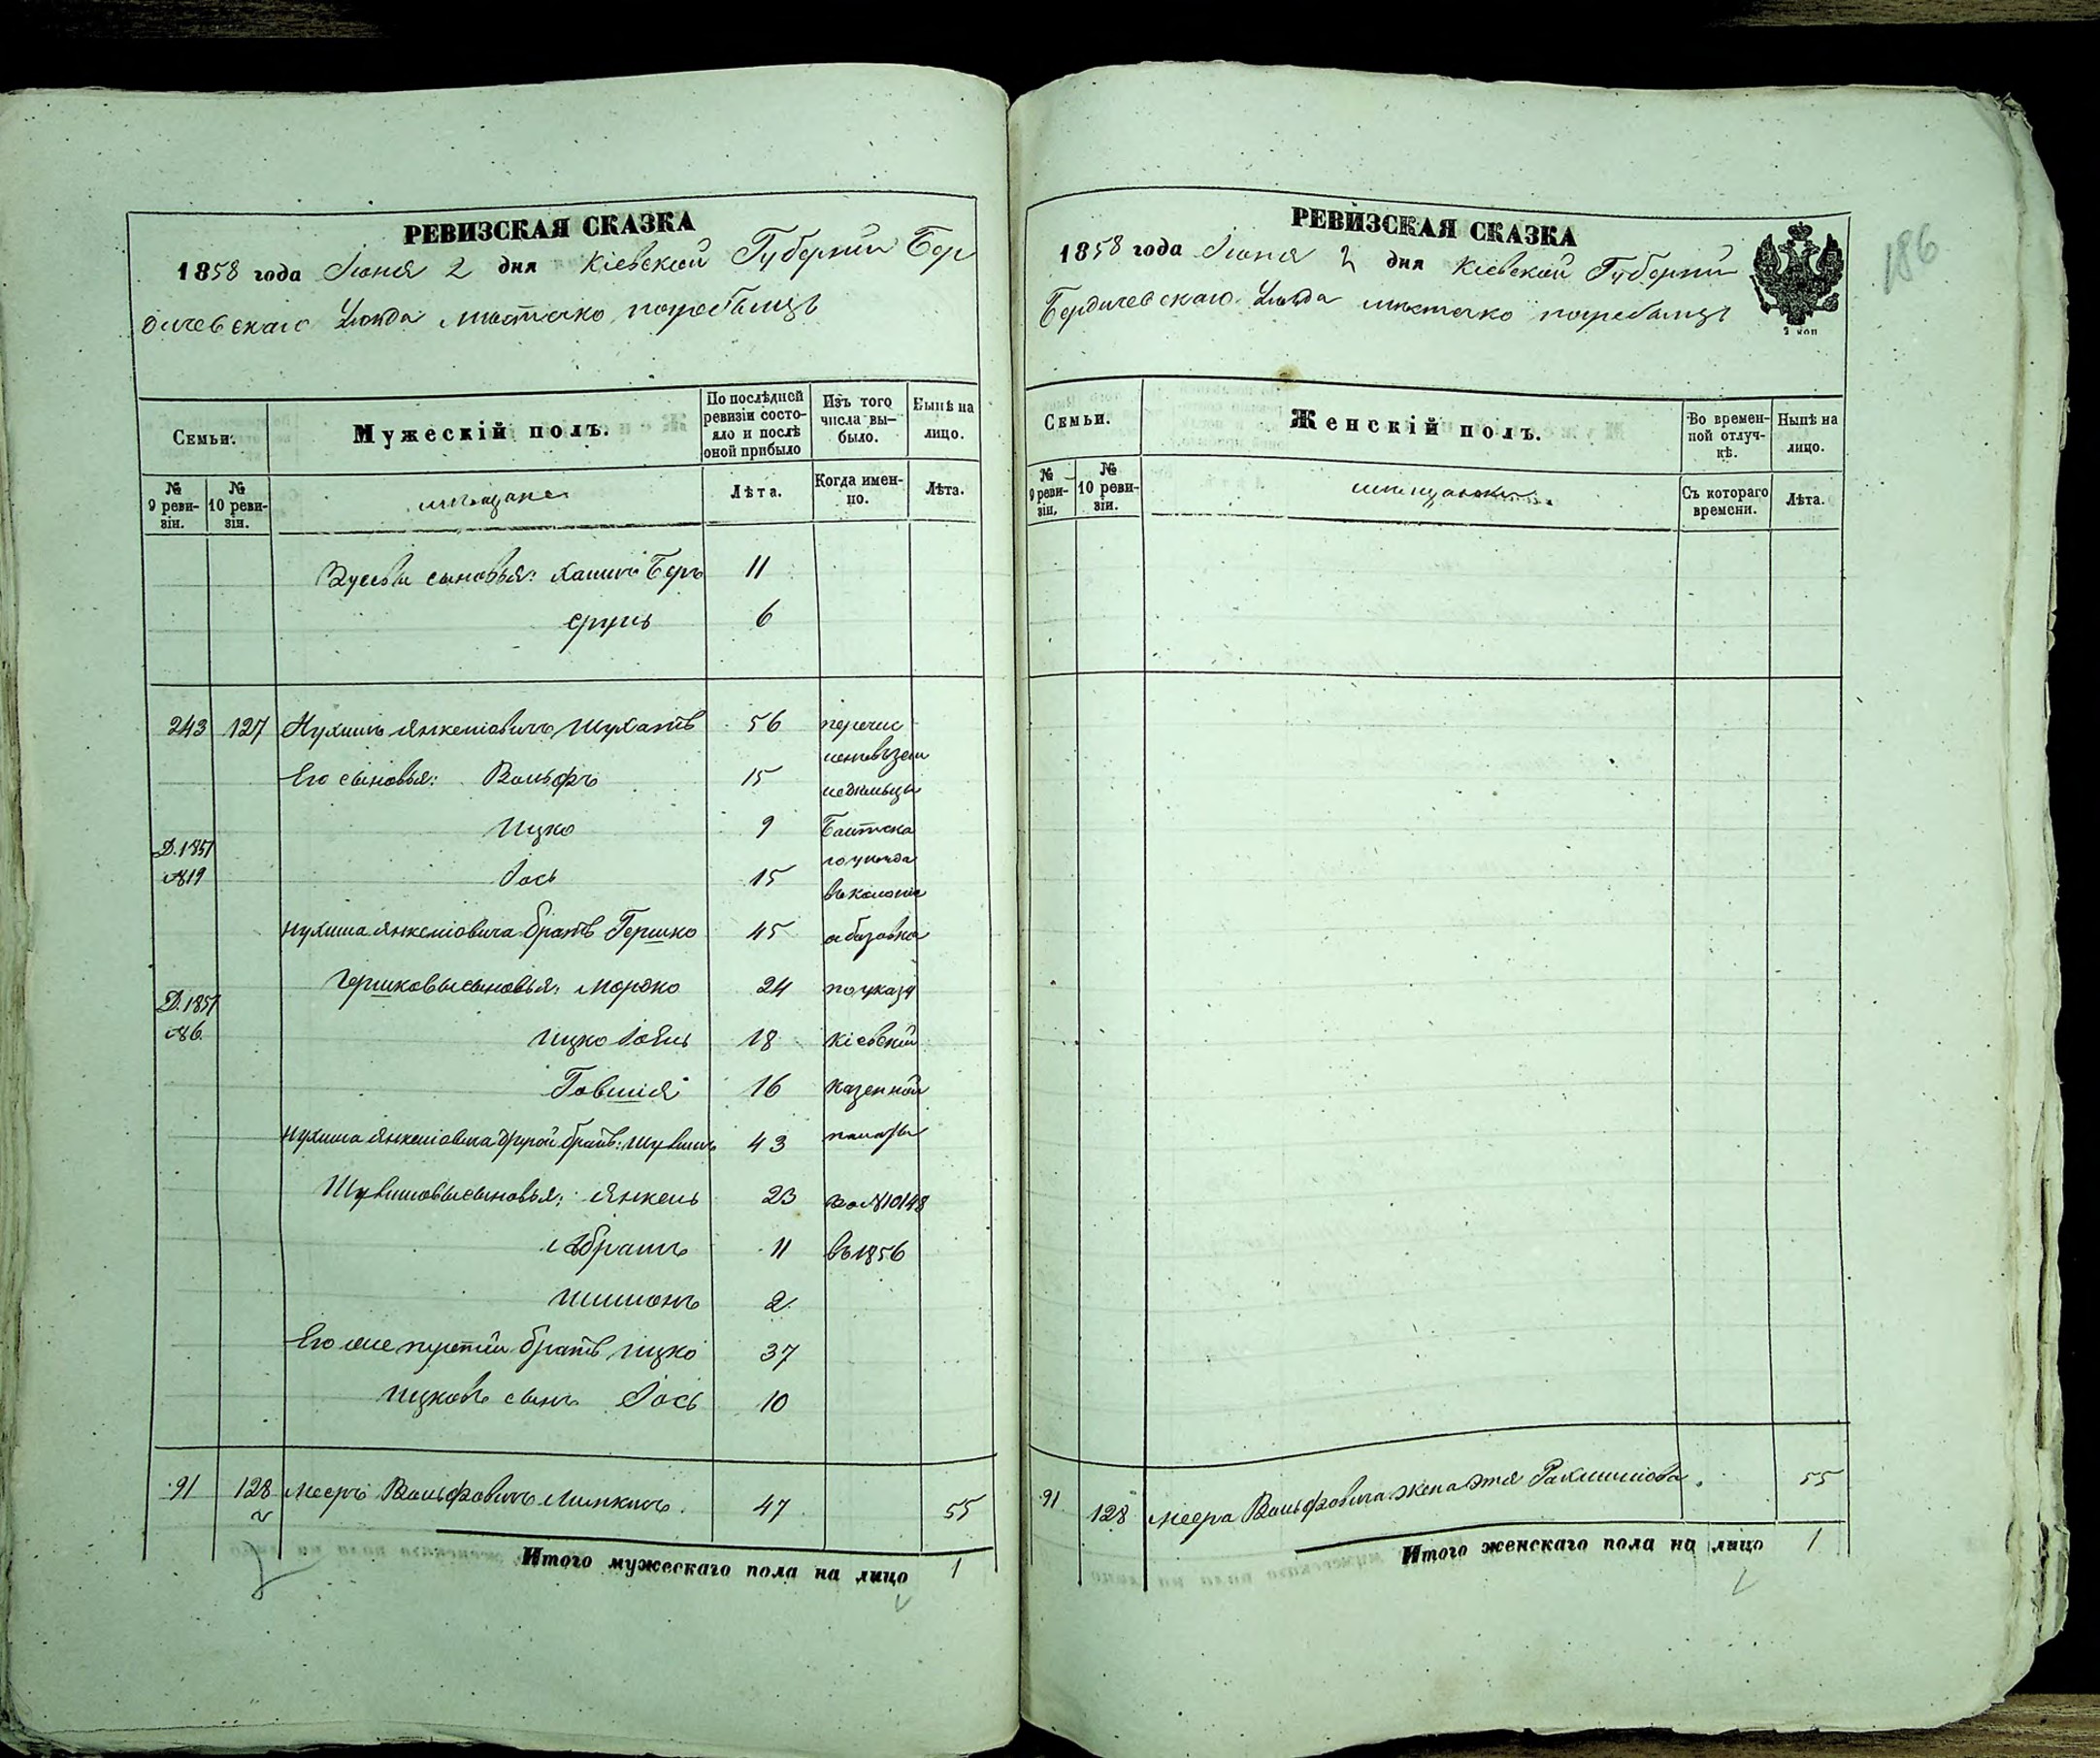 РЕВИЗСКАЯ СКАЗКА
1858 года Іюня 2 дня Кіевской Губерніи Бер
дичевскаго Уѣзда мѣстечко погребищъ
Семьи.
Мужескій полъ.
По послѣдней ревизіи состояло и послѣ оной прибыло
Изъ того числа выбыло.
Нынѣ на лицо.
№ 9 ревизіи.
№ 10 ревизіи.
мѣщане
Лѣта.
Когда именно.
Лѣта.
сыновья: Хаимъ Беръ 11
Сруль 6
243 127 Нухимъ Янкеліовичъ 56 перечис
ленъ въ зем
Его сыновья: Вольфъ 15
ледѣльцы
Ицко 9 Балтска
Д. 1851
го уѣзда
№19 Іось 15
въ колонію
Нухима Янкеліовича братъ Гершко 45 абазовка
Гершковы сыновья: Мордко 24 по указу
Д. 1851
№6. Ицко Іоель 18 Кіевской
Говшія 16 Казенной
Нухима Янкеліовича другой братъ: 43 палаты
сыновья: Янкель 23 за №10148
Абрамъ 11 въ 1856
Шимонъ 2
Его же третій братъ Ицко 37
Ицковъ сынъ Іось 10
91 128 Мееръ Вольфовичъ 47 55
Итого мужескаго пола на лицо 1
РЕВИЗСКАЯ СКАЗКА
186
1858 года Іюня 2 дня Кіевской Губерніи
Бердичевскаго Уѣзда мѣстечко погребищъ
Семьи.
Женскій полъ.
Во временной отлучкѣ.
Нынѣ на лицо.
№ 9 ревизіи.
№ 10 ревизіи.
мѣщанки
Съ котораго времени.
Лѣта.
91 128 Меера Вольфовича жена Рахмиліова 55
Итого женскаго пола на лицо 1